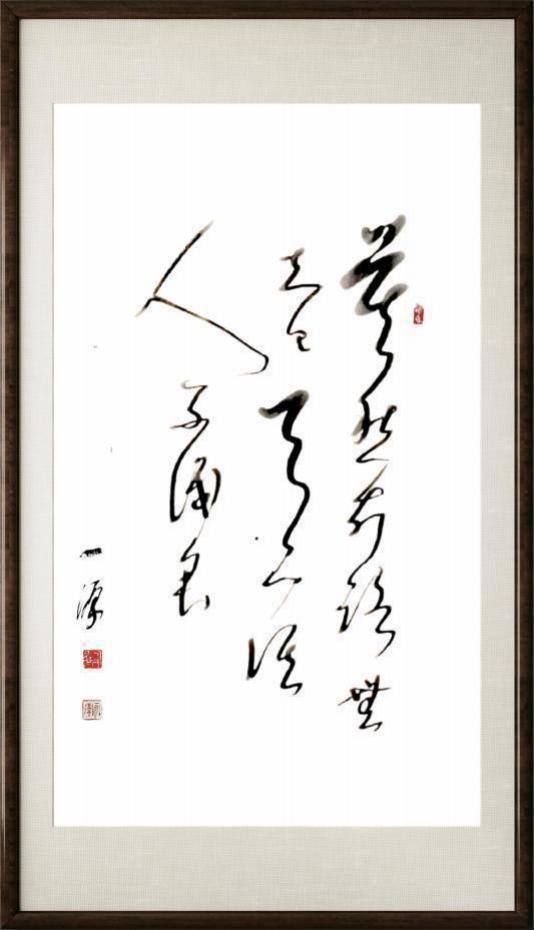 莫愁前路無
知己天下誰
人不識君
一源